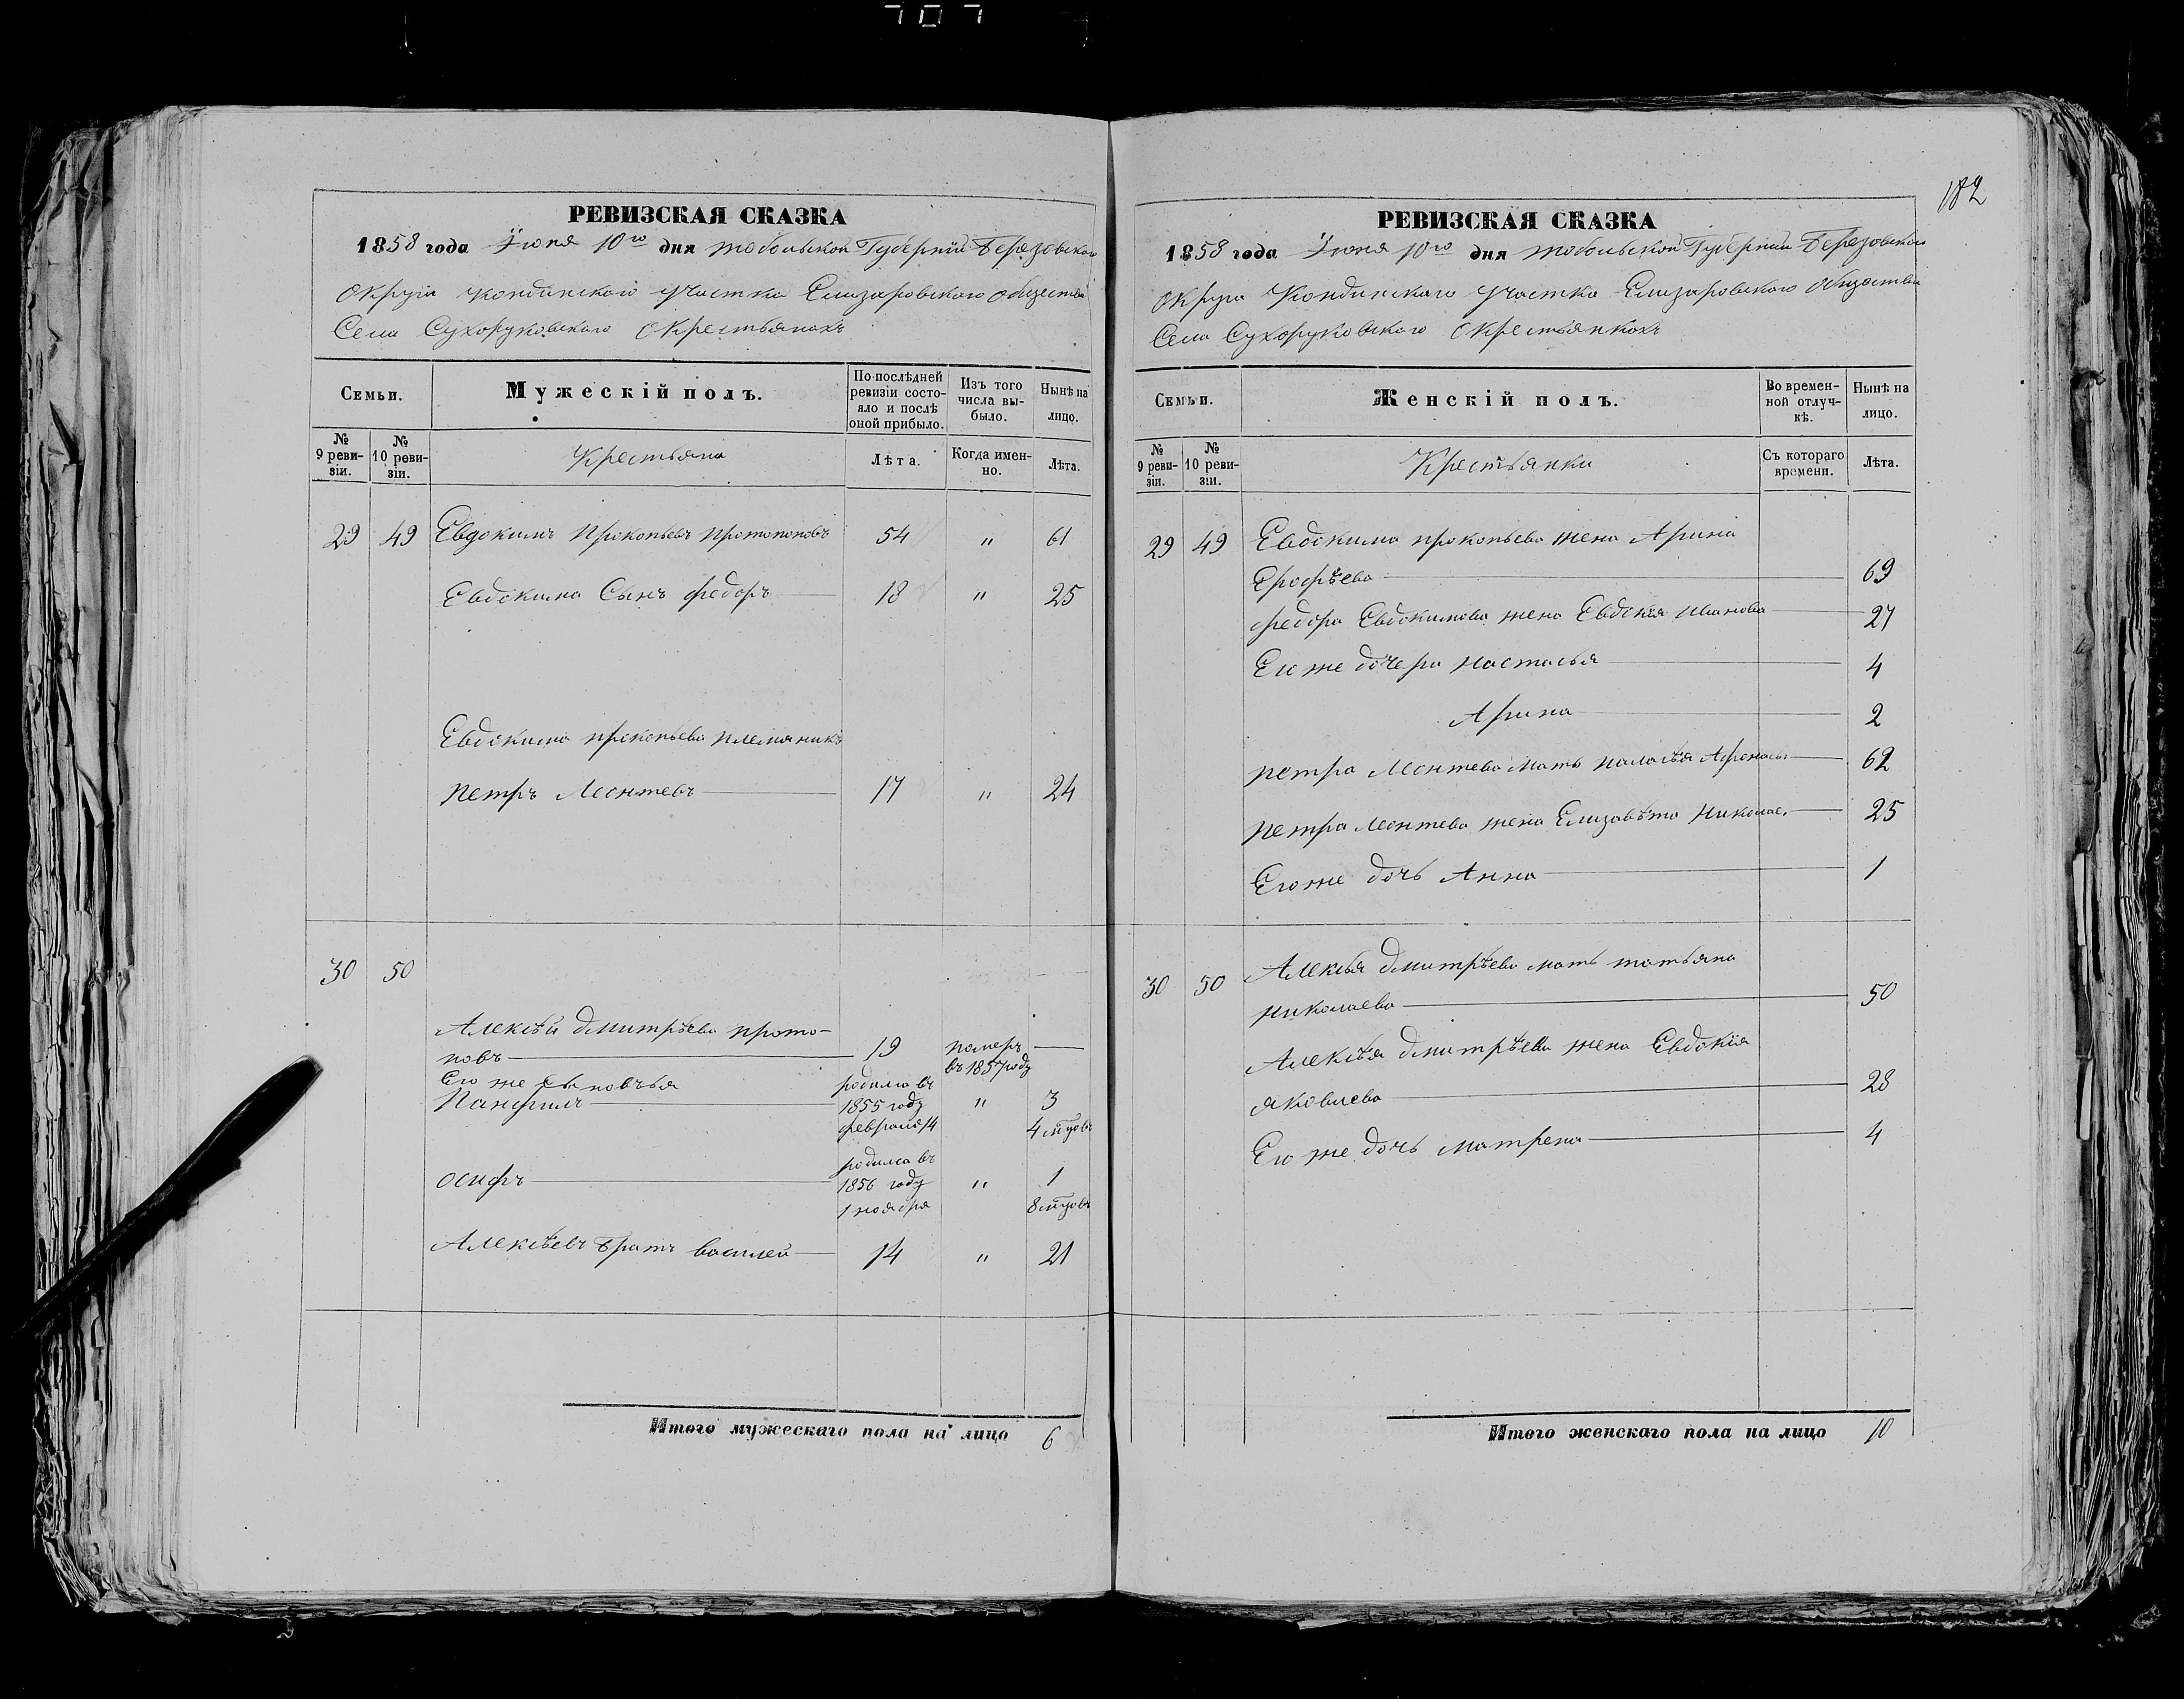 707
182
РЕВИЗСКАЯ СКАЗКА
1858 года Іюня 10го дня Тобольской Губерніи Березовскаго
Округа Кондинскаго Участка Елизаровскаго общества
Села Сухоруковскаго о Крестьянахъ
Семьи.
Мужескій полъ.
По послѣдней ревизіи состо-
яло и послѣ оной прибыло.
Изъ того числа вы-
было.
Нынѣ на лицо.
№ 9 реви-
зіи.
№ 10 реви-
зіи.
Крестьяна
Лѣта.
Когда имен-
но.
Лѣта.
29 49 Евдокимъ Прокопьевъ Протопоповъ 54 " 61
Евдокима Сынъ федоръ 18 " 25
Евдокима прокопьева племяникъ
петръ Леонтевъ 17 " 24
30 50
Алексѣй дмитрѣевъ прото-
повъ 19 померъ
въ 1857 году
Его же сыновъья
Панфилъ родилса въ
1855 году " 3
февраля 14 4 мѣсяцовъ
осифъ родилса въ
1856 году " 1
1 ноября 8 мѣсяцовъ
Алексѣевъ братъ василей 14 " 21
Итого мужескаго пола на лицо 6
РЕВИЗСКАЯ СКАЗКА
1858 года Іюня 10го дня Тобольской Губерніи Березовскаго
Округа Кондинскаго Участка Елизаровскаго Общества
Села Сухоруковскаго о Крестьянкахъ
Семьи.
Женскій полъ.
Во времен-
ной отлуч-
кѣ.
Нынѣ на лицо.
№ 9 реви-
зіи.
№ 10 реви-
зіи.
Крестьянки
Съ котораго времени.
Лѣта.
29 49 Евдокима прокопьева жена Арина
Ерофѣева 69
федора Евдокимова жена Евдокія Иванова 27
Его же дочери настасья 4
Арина 2
петра Леонтева мать паласѣя Афонась. 62
петра леонтева жена Елизавѣта Николае. 25
Его же дочь Анна 1
30 50 Алексѣя дмитрѣева мать татьяна
николаева 50
Алексѣя дмитрѣева жена Евдокія
яковлева 28
Его же дочь матрена 4
Итого женскаго пола на лицо 10